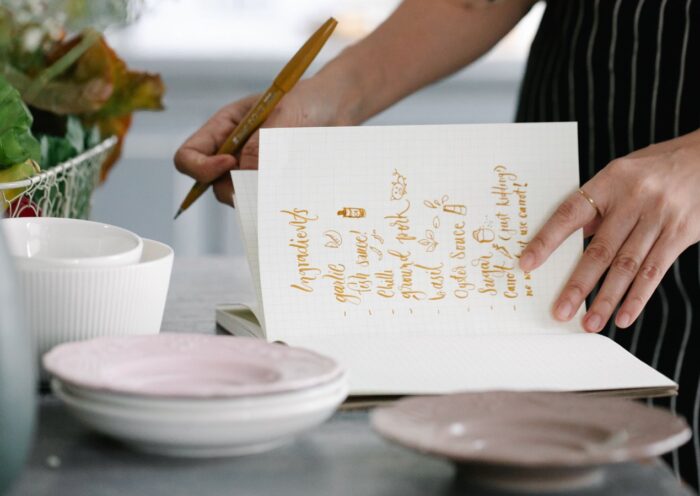 Ingredients
- garlic
- fish sauce!
- Chilli
- ground pork
- basil
- Oyster Sauce
- Sugar
- Carrot (just kidding)
no use carrot!